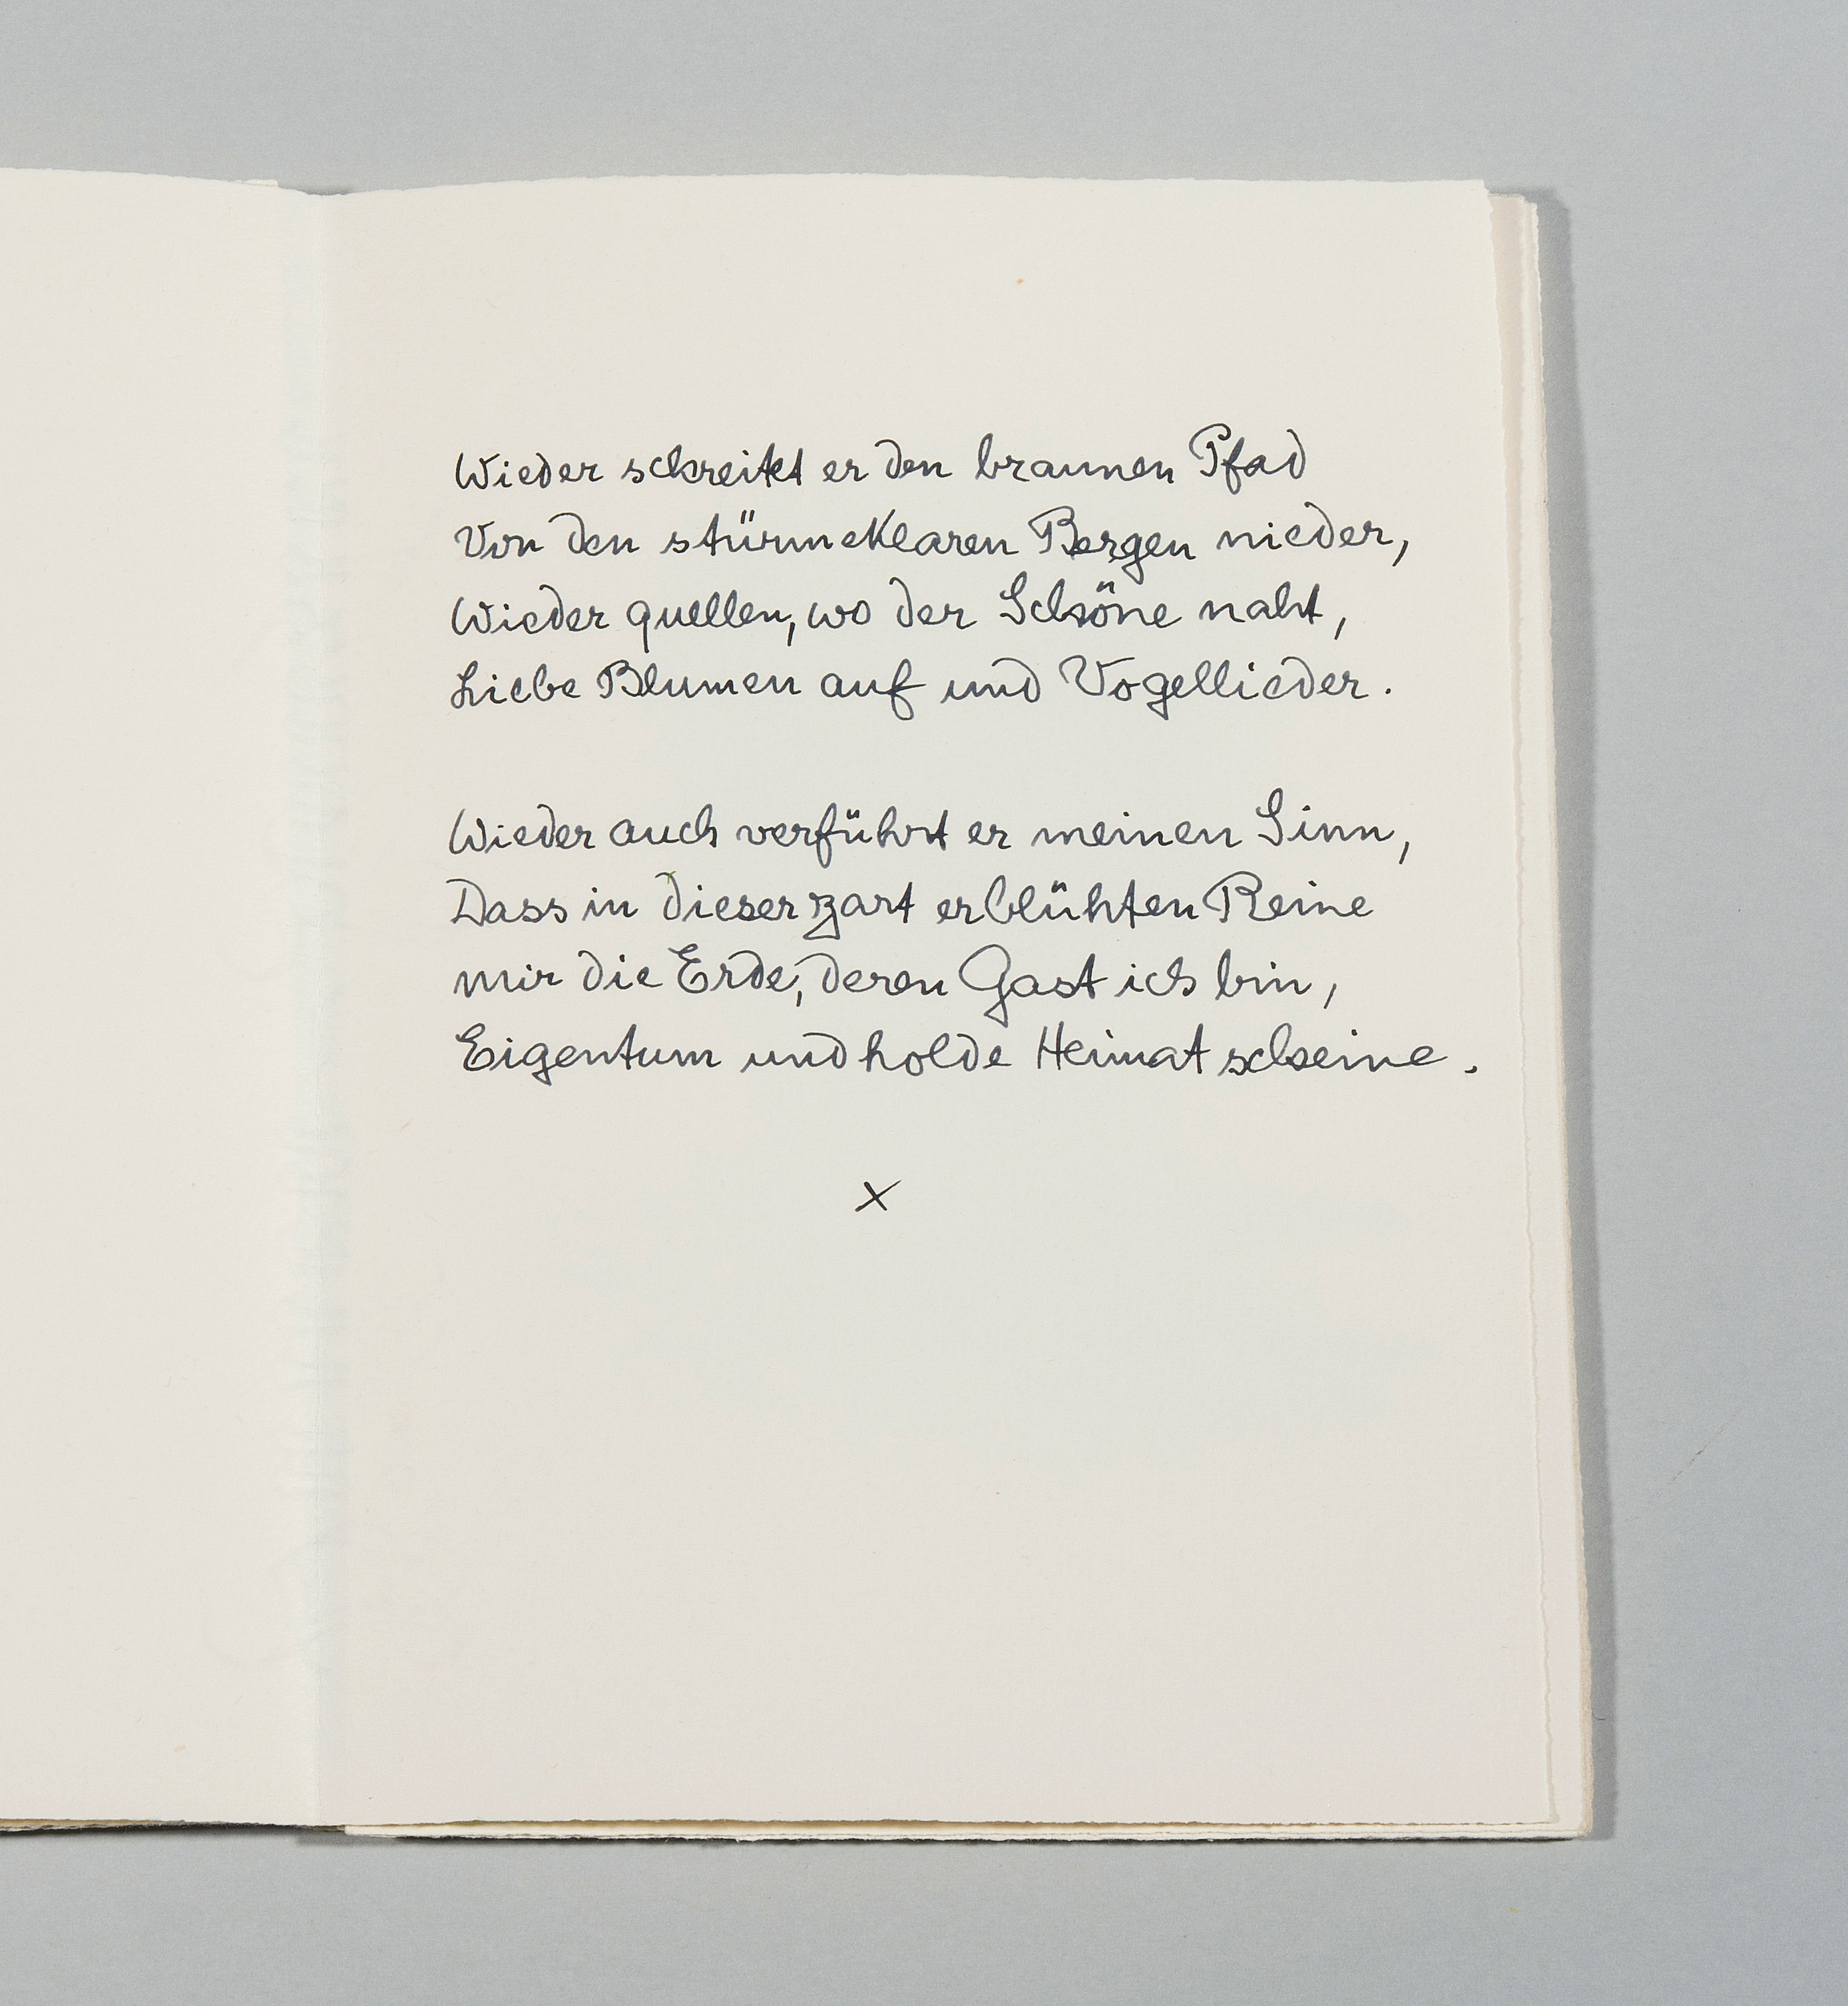 Wieder schreitet er den braunen Pfad
Von den stürmeklaren Bergen nieder,
Wieder quellen, wo der Schöne naht,
Liebe Blumen auf und Vogellieder.
Wieder auch verführt er meinen Sinn,
Dass in dieser zart erblühten Reine
mir die Erde, deren Gast ich bin,
Eigentum und holde Heimat scheine.
x